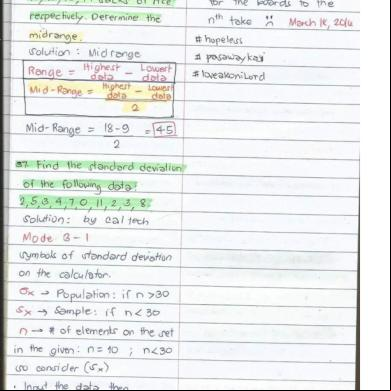 respectively. Determine the
midrange.
Solution: Midrange
Range = Highest data - Lowest data
Mid-Range = Highest data - Lowest data
2
Mid-Range = 18-9 = 4.5
2
37. Find the standard deviation
of the following data:
2,5,3,4,7,0,11,2,3,8.
Solution: by caltech
Mode 3-1
symbols of standard deviation
on the calculator.
σx → Population: if n >30
Sx → Sample: if n < 30
n → # of elements on the set
in the given: n=10 ; n<30
so consider (Sx)
• Input the data then
for the boards to the
nth take March 18, 2016
# hopeless
# pasawaykasi
# loveakoniLord